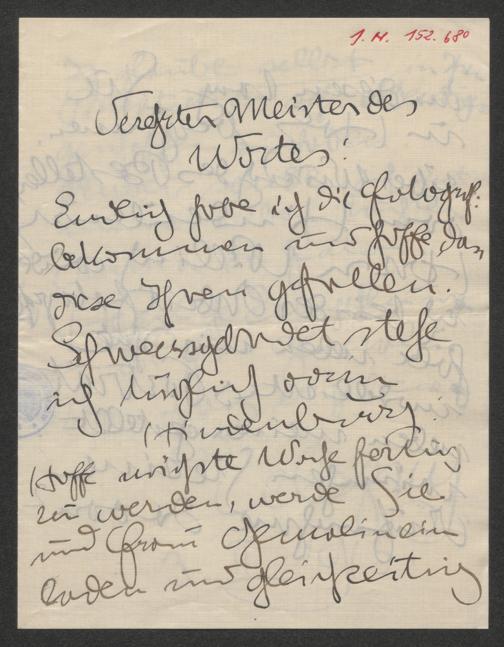 J. N. 152.680
Verehrter Meister des
Wortes!
Endlich habe ich die Fotograf:
bekommen und hoffe, dan
diese Ihnen gefallen.
Schweissgebadet stehe
ich täglich vorm
Hindenburg.
Hoffe nächste Woche fertig
zu werden, werde Sie
und Frau Gemalin ein
laden und gleichzeitig